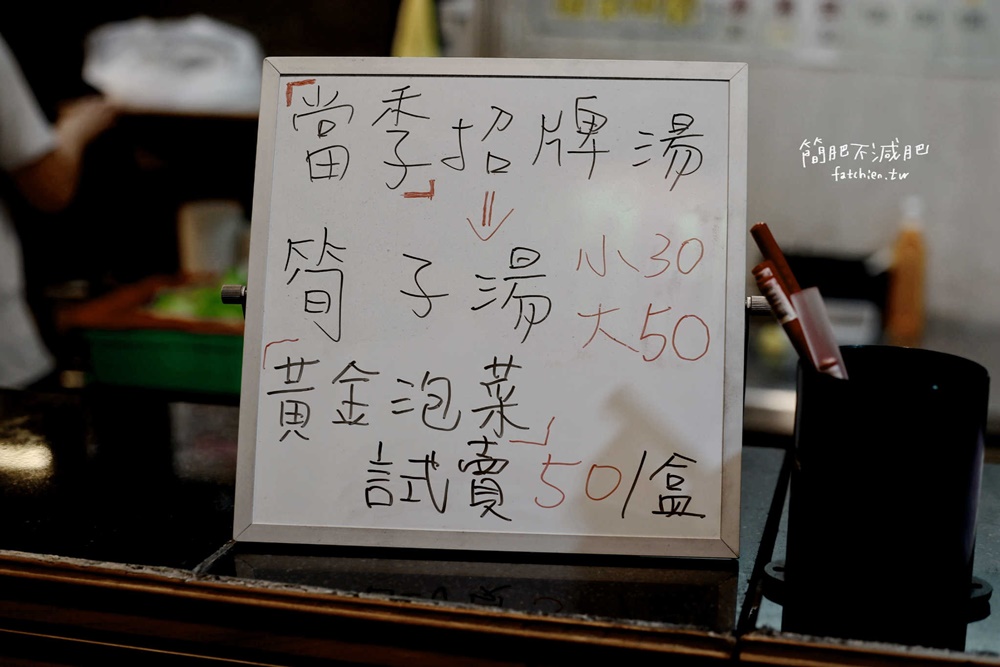 「當季」招牌湯
⇓
筍子湯 小30
大50
「黃金泡菜」
試賣50/盒
簡肥不減肥
fatchien.tw